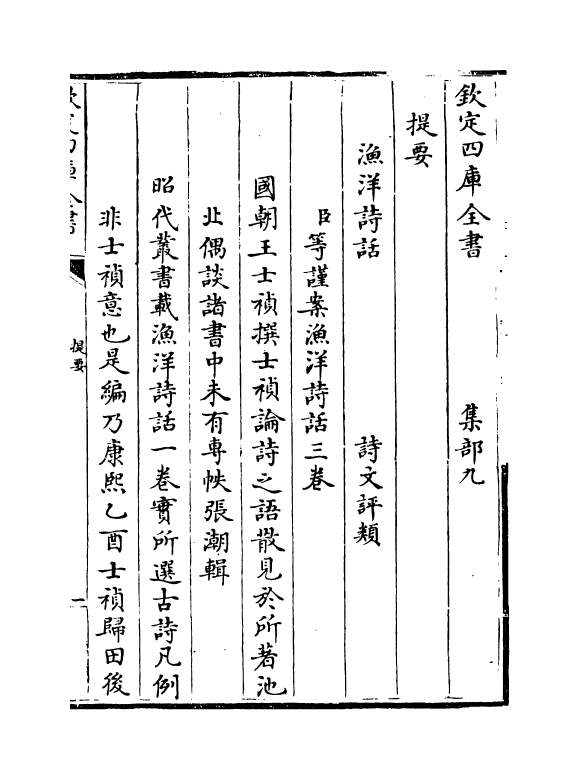 欽定四庫全書　　　集部九
提要
漁洋詩話　　　詩文評類
臣等謹案漁洋詩話三卷
國朝王士禎撰士禎論詩之語散見於所著池
北偶談諸書中未有專帙張潮輯
昭代叢書載漁洋詩話一卷實所選古詩凡例
非士禎意也是編乃康熙乙酉士禎歸田後
欽定四庫全書
提要
一